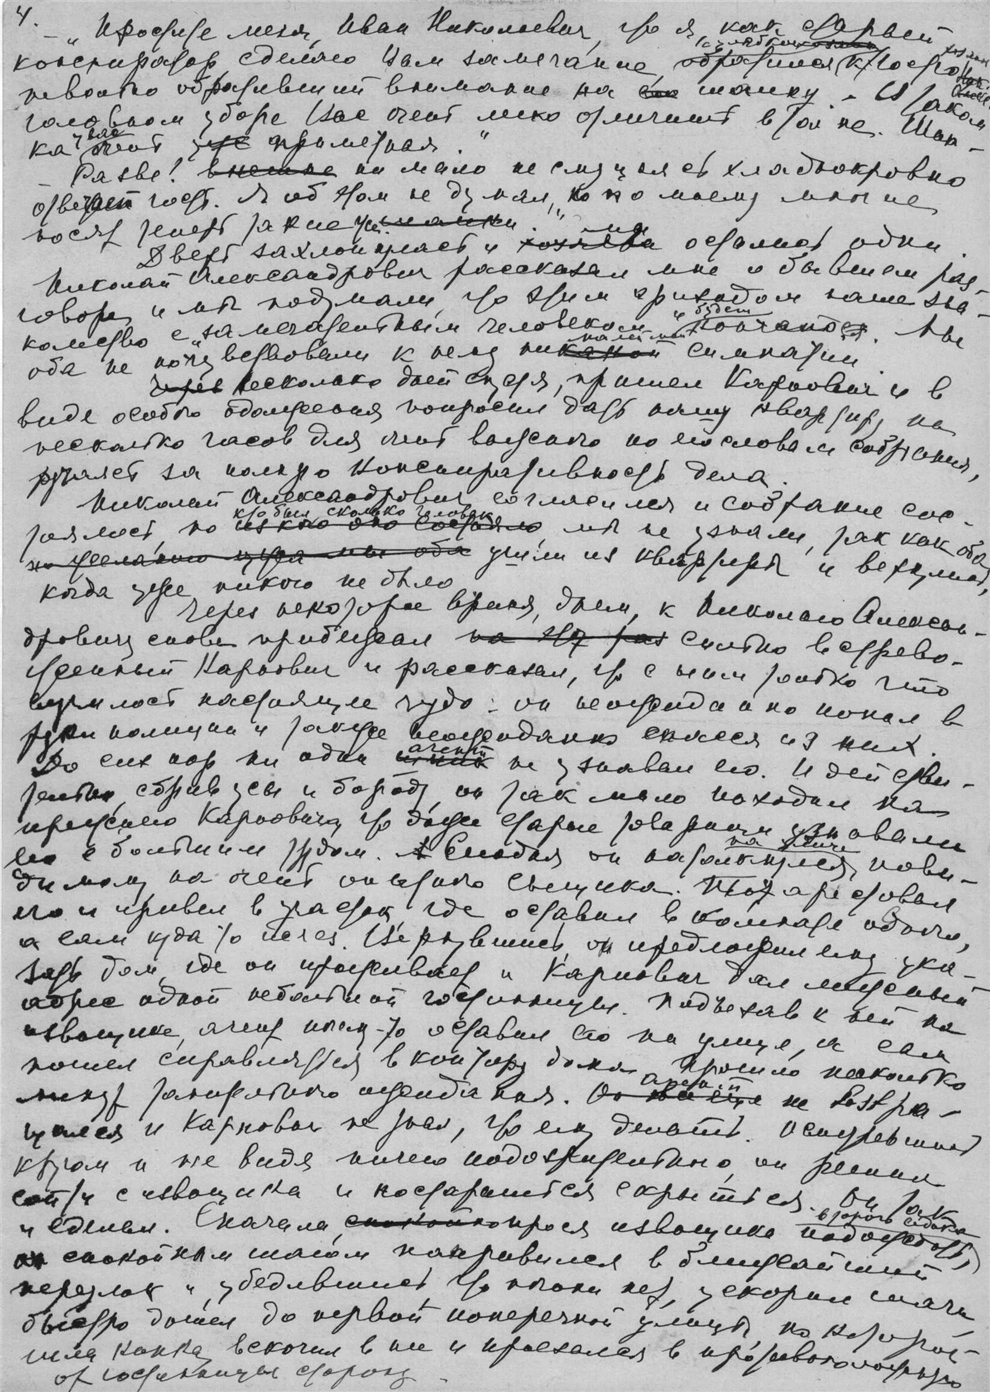 4.
- „Простите меня, Иван Николаевич, что я, как старый
конспиратор сделаю Вам замечание, обратился к
невольно обративший внимание на его шапку. - В таком
головном уборе Вас очень легко отличить в толпе. Шап-
ка у вас очень уже приметная."
- Разве! ни мало не смущаясь хладнокровно
ответил гость. Я об этом не думал, но по моему многие
носят теперь такие шапки."
Дверь захлопнулась и мы остались одни.
Николай Александрович рассказал мне о бывшем раз-
говоре и мы подумали, что этим приходом наше зна-
комство с „замечательным человеком" и будет кончено. Мы
оба не почувствовали к нему никакой симпатии
Через несколько дней спустя, пришел Карпович и в
виде особого одолжения попросил дать нашу квартиру на
несколько часов для очень важного по его словам собрания,
ручаясь за полную конспиративность дела.
Николай Александрович согласился и собрание сос-
тоялось, но кто был сколько человек из кого оно состояло, мы не узнали, так как оба
ушли из квартиры и вернулись,
когда уже никого не было.
Через некоторое время, днем, к Николаю Алексан-
дровичу снова прибежал на этот раз сильно встрево-
женный Карпович и рассказал, что с ним только что
случилось настоящее чудо: он неожиданно попал в
руки полиции и также неожиданно спасся из них.
До сих пор ни один агент не узнавал его. И действи-
тельно, сбрив усы и бороду, он так мало походил на
прежнего Карповича, что даже старые товарищи узнавали
его с большим трудом. Сегодня он натолкнулся на улице, пови-
димому на очень опытного сыщика. Тот арестовал
его и привел в участок, где оставил в комнате одного,
а сам куда-то исчез. Вернувшись, он предложил ему ука-
зать дом, где он проживает и Карпович дал ложный
адрес одной небольшой гостинницы. Подъехав к ней на
извощике, агент почему-то оставил его на улице, а сам
пошел справляться в контору дома. Прошло несколько
минут томительного ожидания. агент не возвра-
щался и Карпович не знал, что ему делать. Осмотревшись
кругом и не видя ничего подозрительного, он решил
сойти с извощика и постараться скрыться. Он так
и сделал. Сначала, спокойно прося извощика подождать второго седока,
он спокойным шагом направился в ближайший
переулок и, убедившись, что погони нет, ускорил шаги,
быстро дошел до первой поперечной улицы, по которой
шла конка, вскочил в нее и проехался в противоположную
от гостинницы сторону.